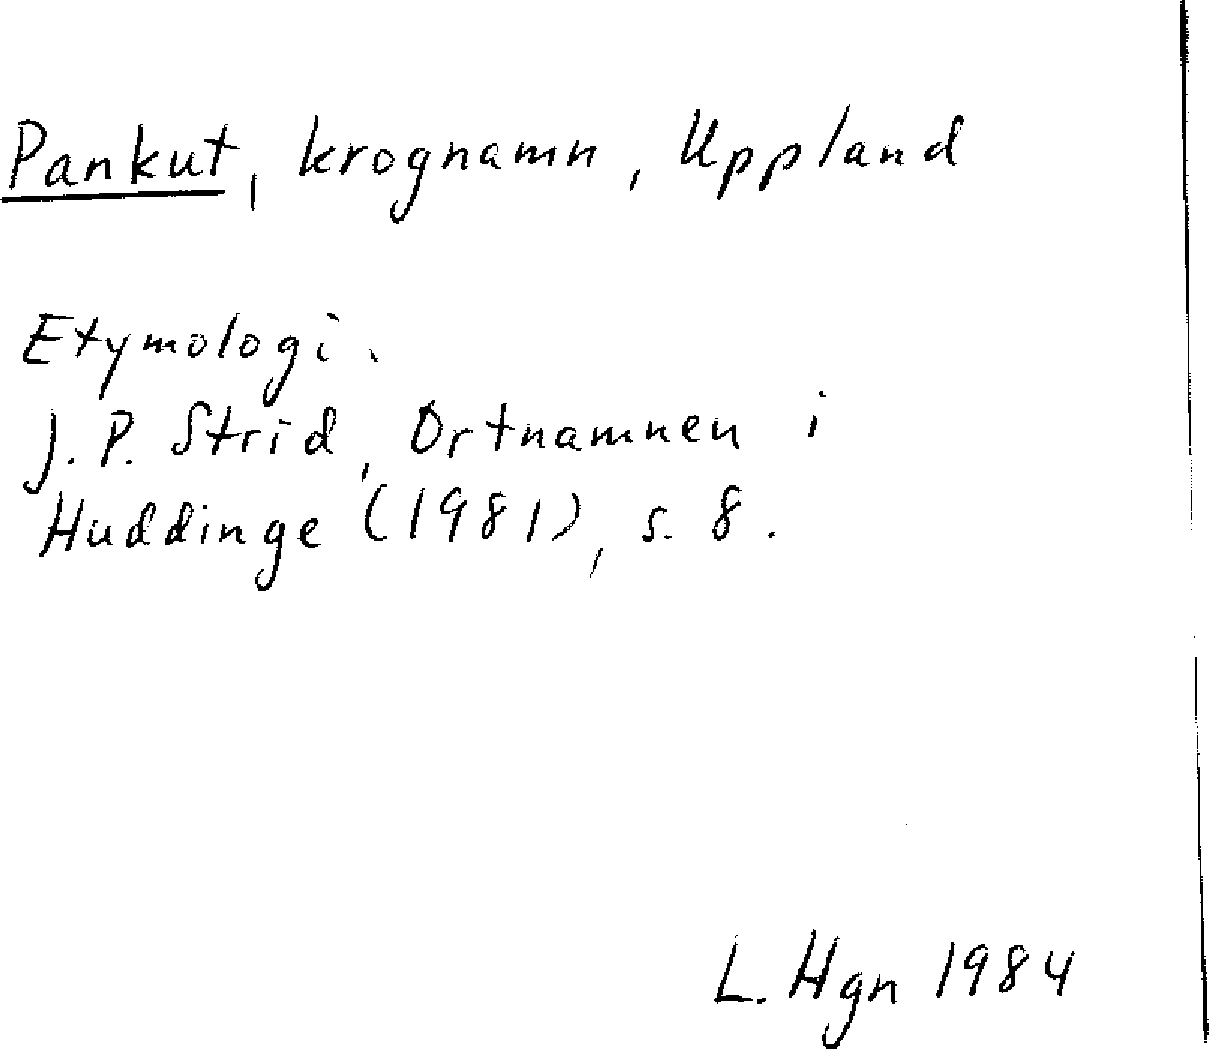 Pankut, krognamn, Uppland
Etymologi.
J. P. Strid, Ortnamnen i
Huddinge (1981), s. 8.
L. Hgn 1984